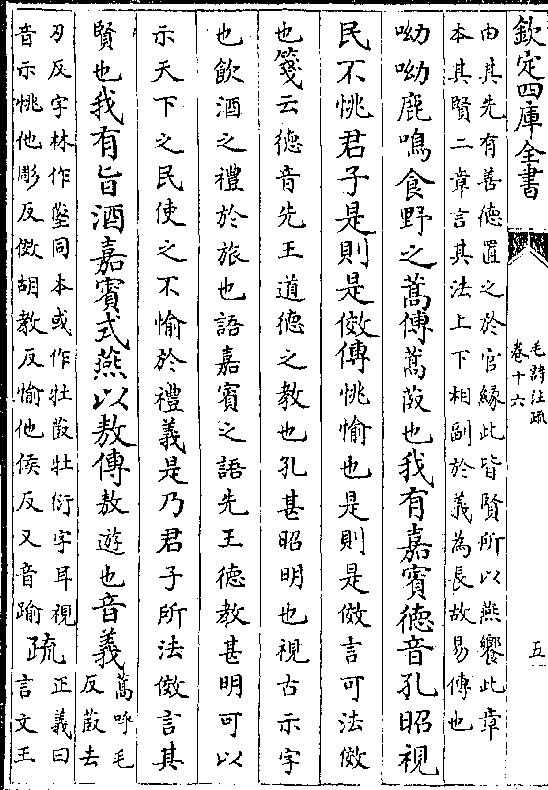 欽定四庫全書
毛詩注疏
卷十六
五
由其先有善德置之於官緣此皆賢所以燕饗此章
本其賢二章言其法上下相副於義為長故易傳也
呦呦鹿鳴食野之蒿傳蒿菣也我有嘉賓德音孔昭視
民不恌君子是則是傚傳恌愉也是則是傚言可法傚
也箋云德音先王道德之教也孔甚昭明也視古示字
也飲酒之禮於旅也語嘉賓之語先王德教甚明可以
示天下之民使之不愉於禮義是乃君子所法傚言其
賢也我有旨酒嘉賓式燕以敖傳敖遊也音義
蒿呼毛
反菣去
刃反字林作𦸂同本或作牡菣牡衍字耳視
音示恌他彫反傚胡教反愉他侯反又音踰
疏
正義曰
言文王